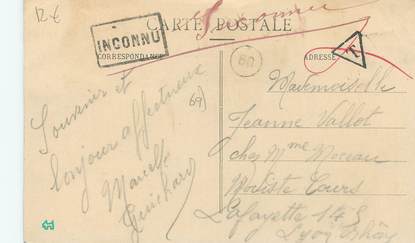 12 €
CARTE POSTALE
INCONNU
CORRESPONDANCE
ADRESSE
T
69
Souvenir et
bonjour affectueux
Marcelle
Guichard
Mademoiselle
Jeanne Vallot
chez Mme Moreau
Modiste Cours
Lafayette
Lyon Rhône